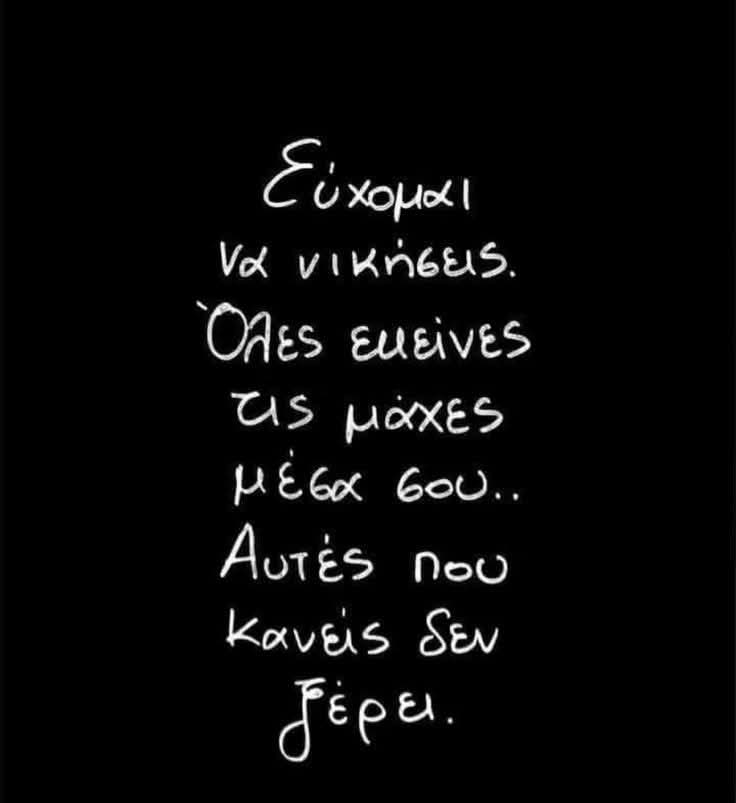 Εύχομαι
να νικήσεις.
Όλες εκείνες
τις μάχες
μέσα σου..
Αυτές που
κανείς δεν
ξέρει.